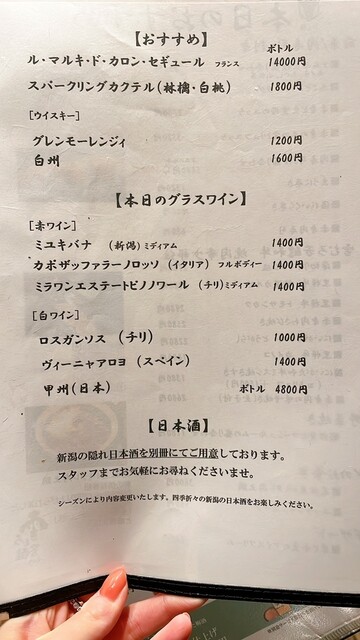 【おすすめ】
ボトル
ル・マルキ・ド・カロン・セギュール フランス 14000円
スパークリングカクテル(林檎・白桃) 1800円
[ウイスキー]
グレンモーレンジィ 1200円
白州 1600円
【本日のグラスワイン】
[赤ワイン]
ミユキバナ (新潟)ミディアム 1400円
カポザッファラーノロッソ (イタリア) フルボディー 1400円
ミラワンエステートピノノワール (チリ)ミディアム 1400円
[白ワイン]
ロスガンソス (チリ) 1000円
ヴィーニャアロヨ (スペイン) 1400円
甲州(日本) ボトル 4800円
【日本酒】
新潟の隠れ日本酒を別冊にてご用意しております。
スタッフまでお気軽にお尋ねくださいませ。
シーズンにより内容変更いたします。四季折々の新潟の日本酒をお楽しみください。